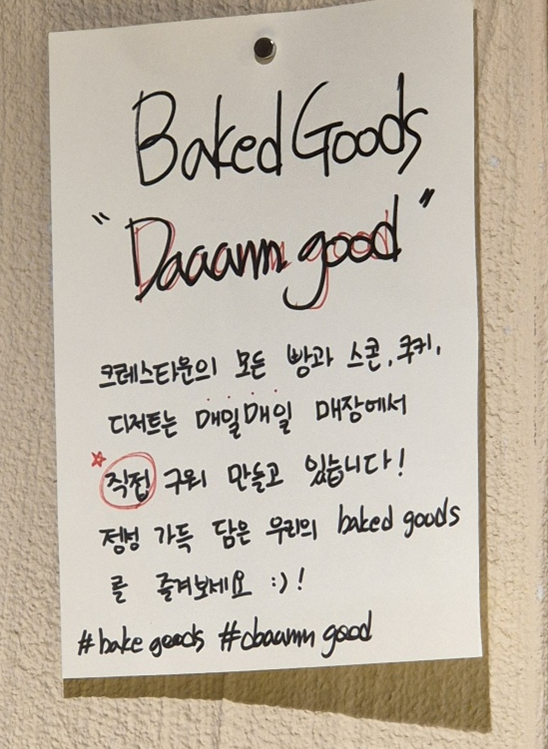 Baked Goods
"Daaamn good"
크레스타운의 모든 빵과 스콘, 쿠키,
디저트는 매일매일 매장에서
직접 구워 만들고 있습니다!
정성 가득 담은 우리의 baked goods
를 즐겨보세요 :)!
#bake goods #daaamn good